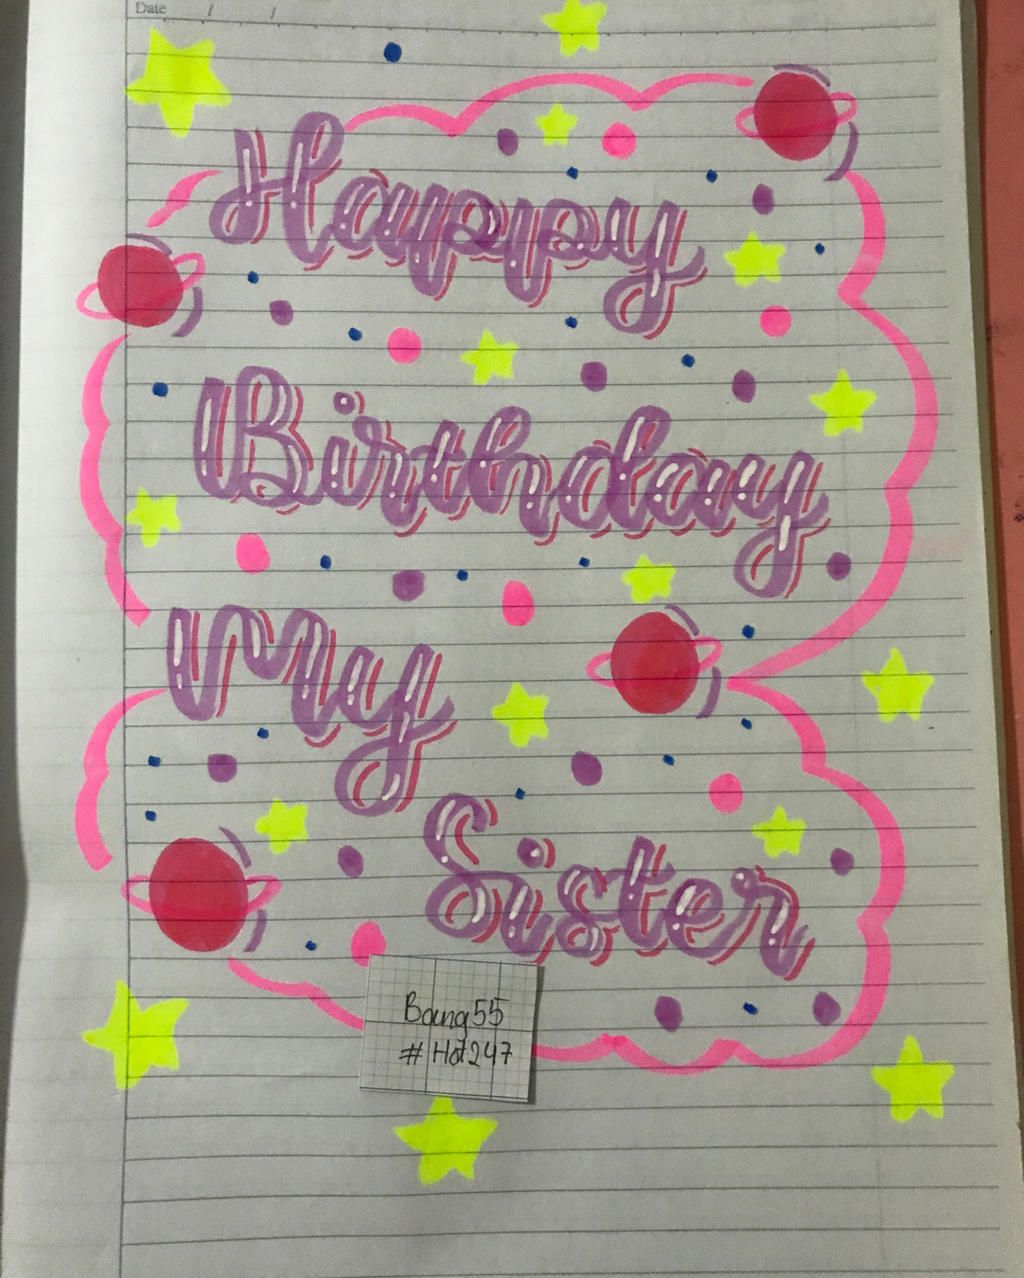 Date / /
Happy
Birthday
My
Sister
Bang55
# Hot247